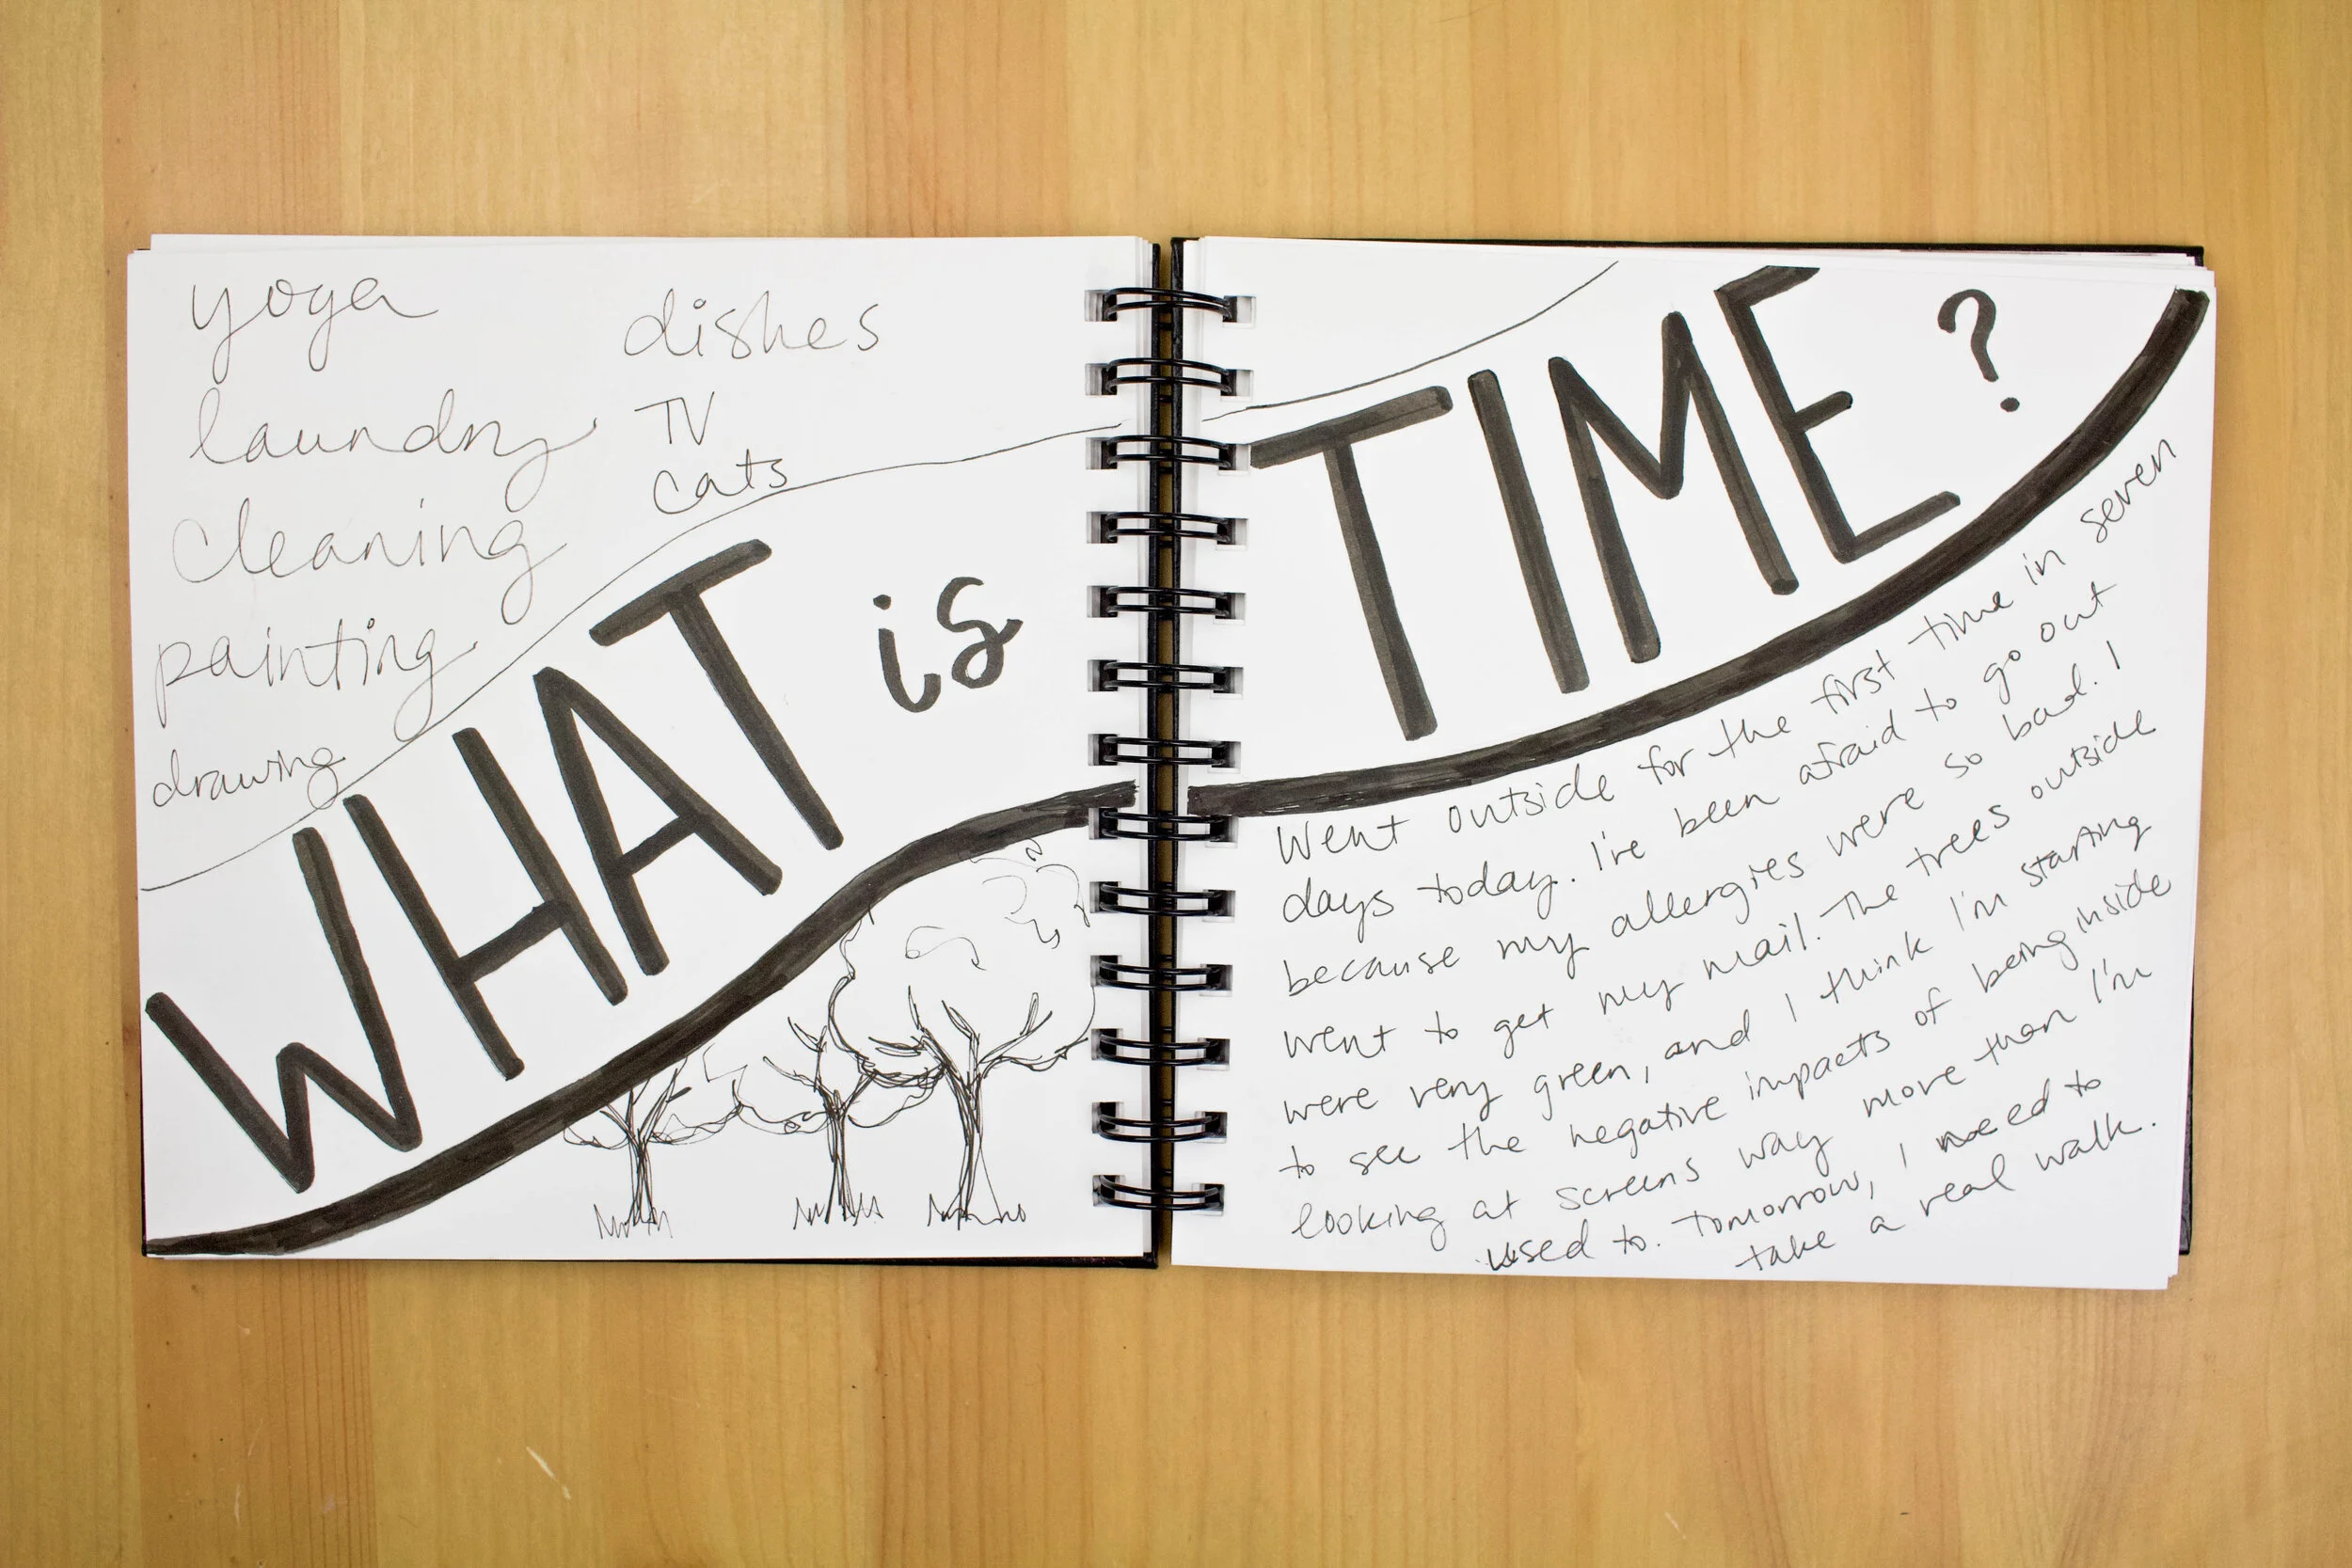 yoga
laundry
cleaning
painting
drawing
dishes
TV
cats
WHAT is TIME?
Went outside for the first time in seven
days today. I've been afraid to go out
because my allergies were so bad. I
went to get my mail. The trees outside
were very green, and I think I'm starting
to see the negative impacts of being inside
looking at screens way more than I'm
used to. Tomorrow, I need to
take a real walk.